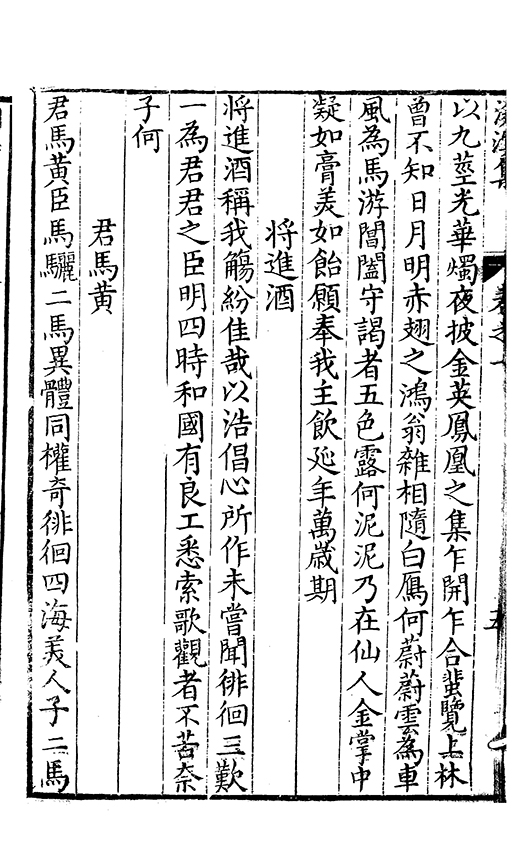 以九莖光華燭夜披金英鳳凰之集乍開乍合蜚覽上林
曾不知日月明赤翅之鴻翁雜相隨白鴈何蔚蔚雲為車
風為馬游閶闔守謁者五色露何泥泥乃在仙人金掌中
凝如膏美如飴願奉我主飲延年萬歲期
將進酒
將進酒稱我觴紛佳哉以浩倡心所作未嘗聞徘徊三歎
一為君君之臣明四時和國有良工悉索歌觀者不苦奈
子何
君馬黃
君馬黃臣馬驪二馬異體同權奇徘徊四海美人子二馬